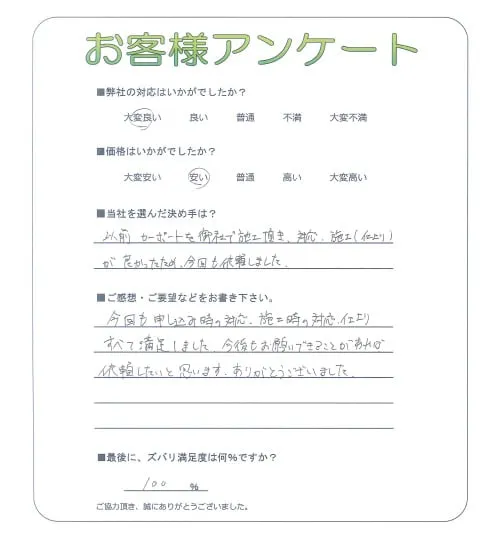 お客様アンケート
■弊社の対応はいかがでしたか？
大変良い 良い 普通 不満 大変不満
■価格はいかがでしたか？
大変安い 安い 普通 高い 大変高い
■当社を選んだ決め手は？
以前 カーポートを御社で施工頂き、対応、施工(仕上り)
が良かったため、今回も依頼しました。
■ご感想・ご要望などをお書き下さい。
今回も申し込み時の対応、施工時の対応、仕上り
すべて満足しました。今後もお願いできることがあれば
依頼したいと思います。ありがとうございました。
■最後に、ズバリ満足度は何％ですか？
100 ％
ご協力頂き、誠にありがとうございました。